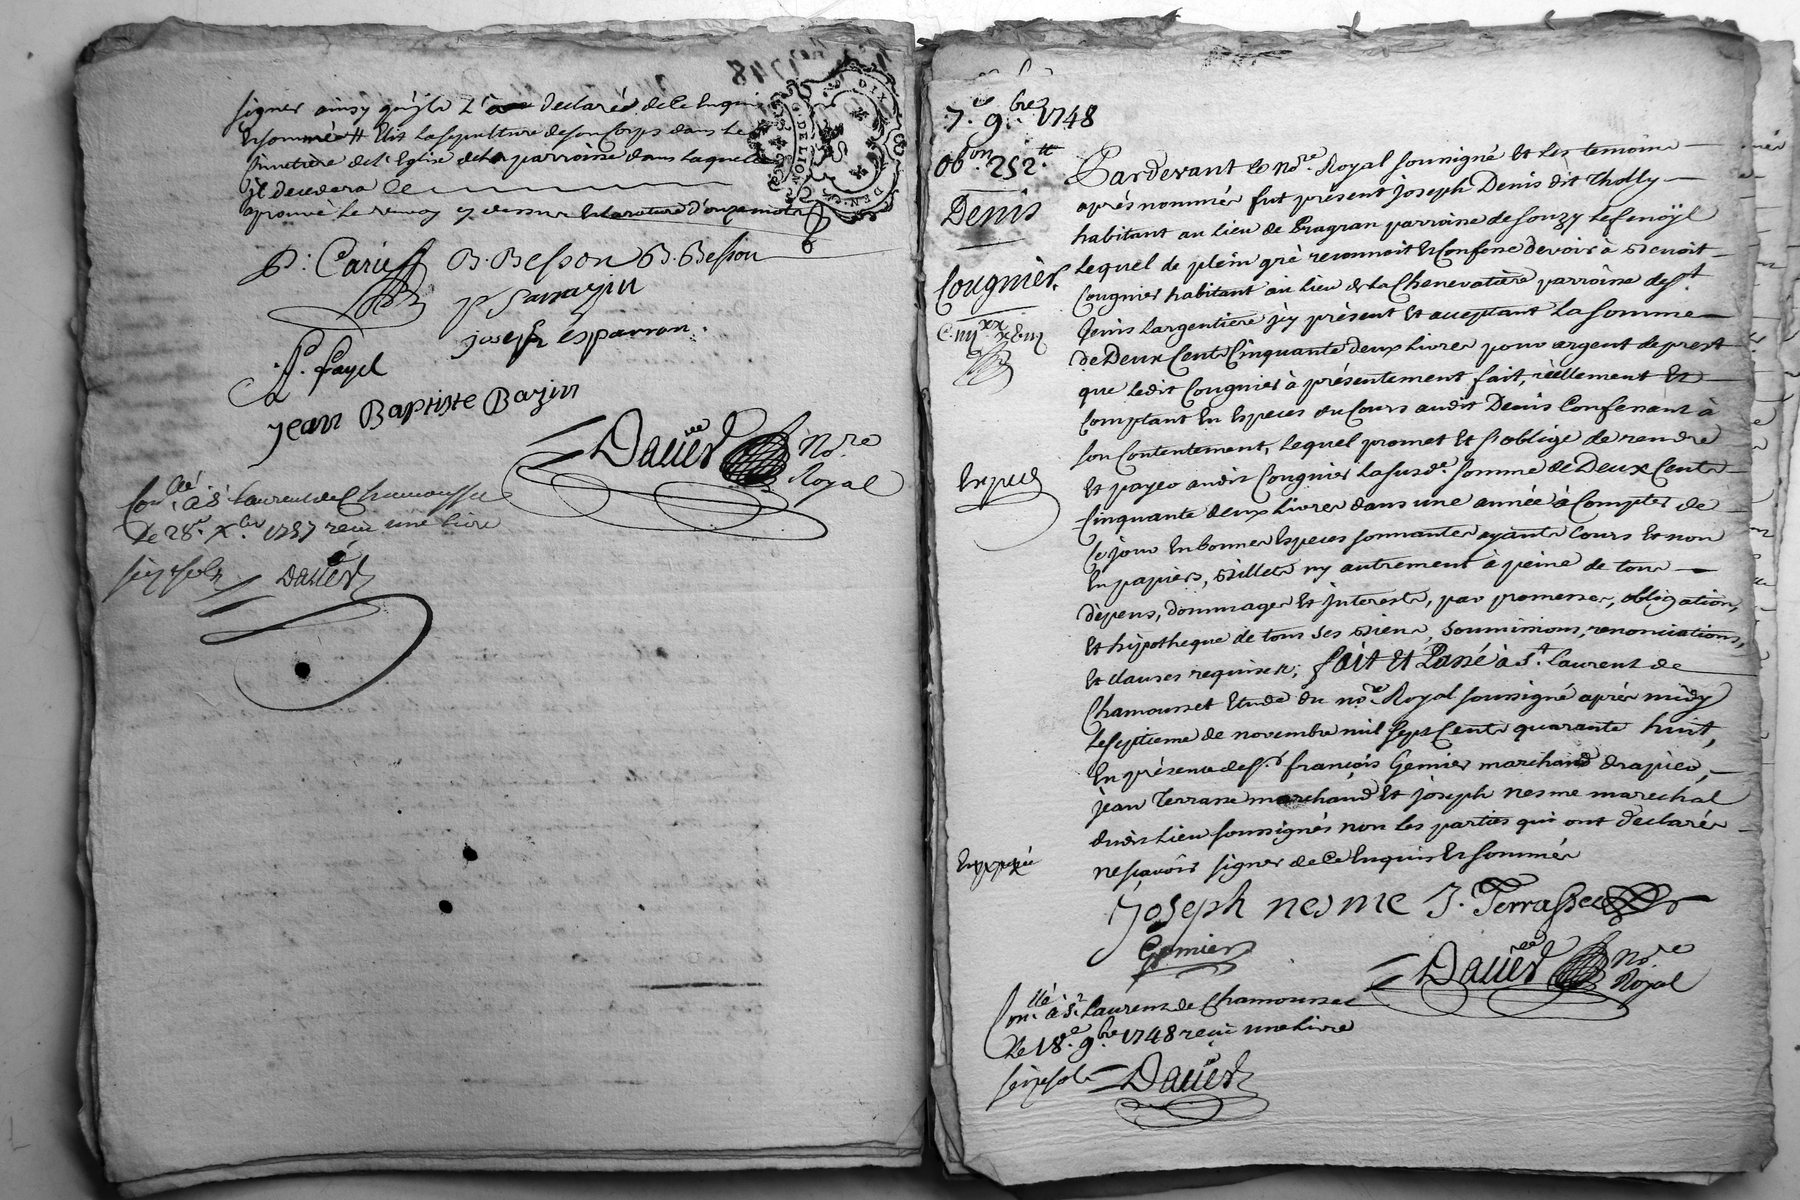 signer ainsy qu'ils l'ont declaré de ce enquis
et sommés # Elit la sepulture de son Corps dans le
cimetiere de l'Eglise de la parroisse dans laquelle
il decedera
aprouvé le renvoy cy dessus et la rature d'onze mots
DIX DEN
G. DE LION
P. Carie
B. Besson B. Besson
P Sarrazin
joseph esparron.
P. fayel
jean Baptiste Bazin
Dauier No.re
Royal
Con.llé à S.t Laurent de Chamousset
le 28.e x.bre 1757 reçu une livre
seize sols Dauier
7.e 9.bre 1748
Ob.on 252.tt
Denis
Cougnier.
Pardevant le No.re Royal soussigné et les temoins
après nommés fut présent joseph Denis dit Tholly
habitant au lieu de Pragran parroisse de Souzy Lesenoÿl
Lequel de plein gré reconnoit et Confesse devoir à Benoit
Cougnier habitant au lieu de La Chenevatière parroisse de s.t
Genis Largentiere jcy présent et acceptant La Somme
de Deux Cents Cinquante deux Livres pour argent de prest
que ledit Cougnier à présentement fait, rèellement et
Comptant en Especes du Cours audit Denis Confessant à
son Contentement, Lequel promet et s'oblige de rendre
Et payer audit Cougnier La susd.e Somme de Deux Cents
Cinquante deux Livres dans une année à Compter de
ce jour En bonnes Especes sonnantes ayants Cours et non
En papiers, Billets ny autrement à peine de tous
dèpens, dommages et jnterests, par promesses, obligation,
et hÿpotheque de tous ses Biens, soumissions, renonciations,
et clauses requises; fait et Passé à S.t Laurent de
Chamousset Etude du no.re Royal soussigné aprés midy
Le Septieme de novembre mil Sept Cents quarante huit,
En présence de S.r françois Gemier marchand drapier,
jean Terrasse marchand et joseph nesme marechal
dudit Lieu soussignés non les parties qui ont declarés
ne scavoir signer de ce Enquis et sommés
Expedié
joseph nesme J. Terrasse
Gemier
Dauier No.re
Royal
Con.llé à S.t Laurent de Chamousset
Le 18.e 9.bre 1748 reçu une Livre
seize sols Dauier